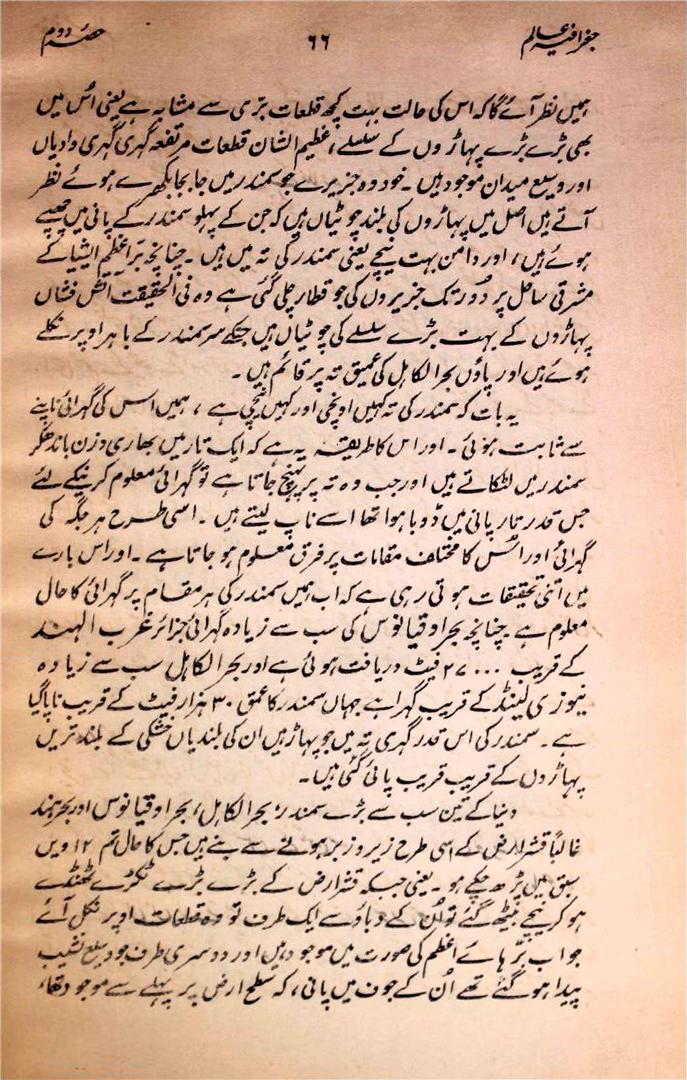 جغرافیۂ عالم ۶۶ حصہ دوم
ہمیں نظر آئے گا کہ اس کی حالت بہت کچھ قطعات برّی سے مشابہ ہے یعنی اُس میں
بھی بڑے بڑے پہاڑوں کے سلسلے، عظیم الشان قطعات مرتفعہ گہری گہری وادیاں
اور وسیع میدان موجود ہیں ۔ خود وہ جزیرے جو سمندر میں جا بجا بکھرے ہوئے نظر
آتے ہیں اصل میں پہاڑوں کی بلند چوٹیاں ہیں کہ جن کے پہلو سمندر کے پانی میں چھپے
ہوئے ہیں، اور دامن بہت نیچے یعنی سمندر کی تہ میں ہیں ۔ چنانچہ برّاعظم ایشیا کے
مشرقی ساحل پر دُور تک جزیروں کی جو قطار چلی گئی ہے وہ فی الحقیقت آتش فشاں
پہاڑوں کے بہت بڑے سلسلے کی چوٹیاں ہیں جنکے سر سمندر کے باہر اوپر نکلے
ہوئے ہیں اور پاؤں بحر الکاہل کی عمیق تہ پر قائم ہیں ۔
یہ بات کہ سمندر کی تہ کہیں اونچی اور کہیں نیچی ہے ، ہمیں اس کی گہرائی ناپنے
سے ثابت ہوئی ۔ اور اس کا طریقہ یہ ہے کہ ایک تار میں بھاری وزن باندھکر
سمندر میں لٹکاتے ہیں اور جب وہ تہ پر پہنچ جاتا ہے تو گہرائی معلوم کرنیکے لئے
جس قدر تار پانی میں ڈوبا ہوا تھا اسے ناپ لیتے ہیں ۔ اسی طرح ہر جگہ کی
گہرائی اور اُس کا مختلف مقامات پر فرق معلوم ہو جاتا ہے ۔ اور اس بارے
میں اتنی تحقیقات ہوتی رہی ہے کہ اب ہمیں سمندر کی ہر مقام پر گہرائی کا حال
معلوم ہے چنانچہ بحر اوقیانوس کی سب سے زیادہ گہرائی جزائر غرب الہند
کے قریب ۲۷۰۰۰ فیٹ دریافت ہوئی ہے اور بحر الکاہل سب سے زیادہ
نیوزی لینڈ کے قریب گہرا ہے جہاں سمندر کا عمق ۳۰ ہزار فیٹ کے قریب ناپا گیا
ہے ۔ سمندر کی اس قدر گہری تہ میں جو پہاڑ ہیں ان کی بلندیاں خشکی کے بلند ترین
پہاڑوں کے قریب قریب پائی گئی ہیں ۔
دنیا کے تین سب سے بڑے سمندر، بحر الکاہل، بحر اوقیانوس اور بحر ہند
غالباً قشر ارض کے اسی طرح زیر و زبر ہونے سے بنے ہیں جس کا حال تم ۱۲ ویں
سبق میں پڑھ چکے ہو ۔ یعنی جبکہ قشر ارض کے بڑے بڑے ٹکڑے ٹھنڈے
ہو کر نیچے بیٹھ گئے تو اُن کے دباؤ سے ایک طرف تو وہ قطعات اوپر نکل آئے
جو اب برّ ہائے اعظم کی صورت میں موجود ہیں اور دوسری طرف جو وسیع نشیب
پیدا ہو گئے تھے اُن کے جوف میں پانی، کہ سطح ارض پر پہلے سے موجود تھا،